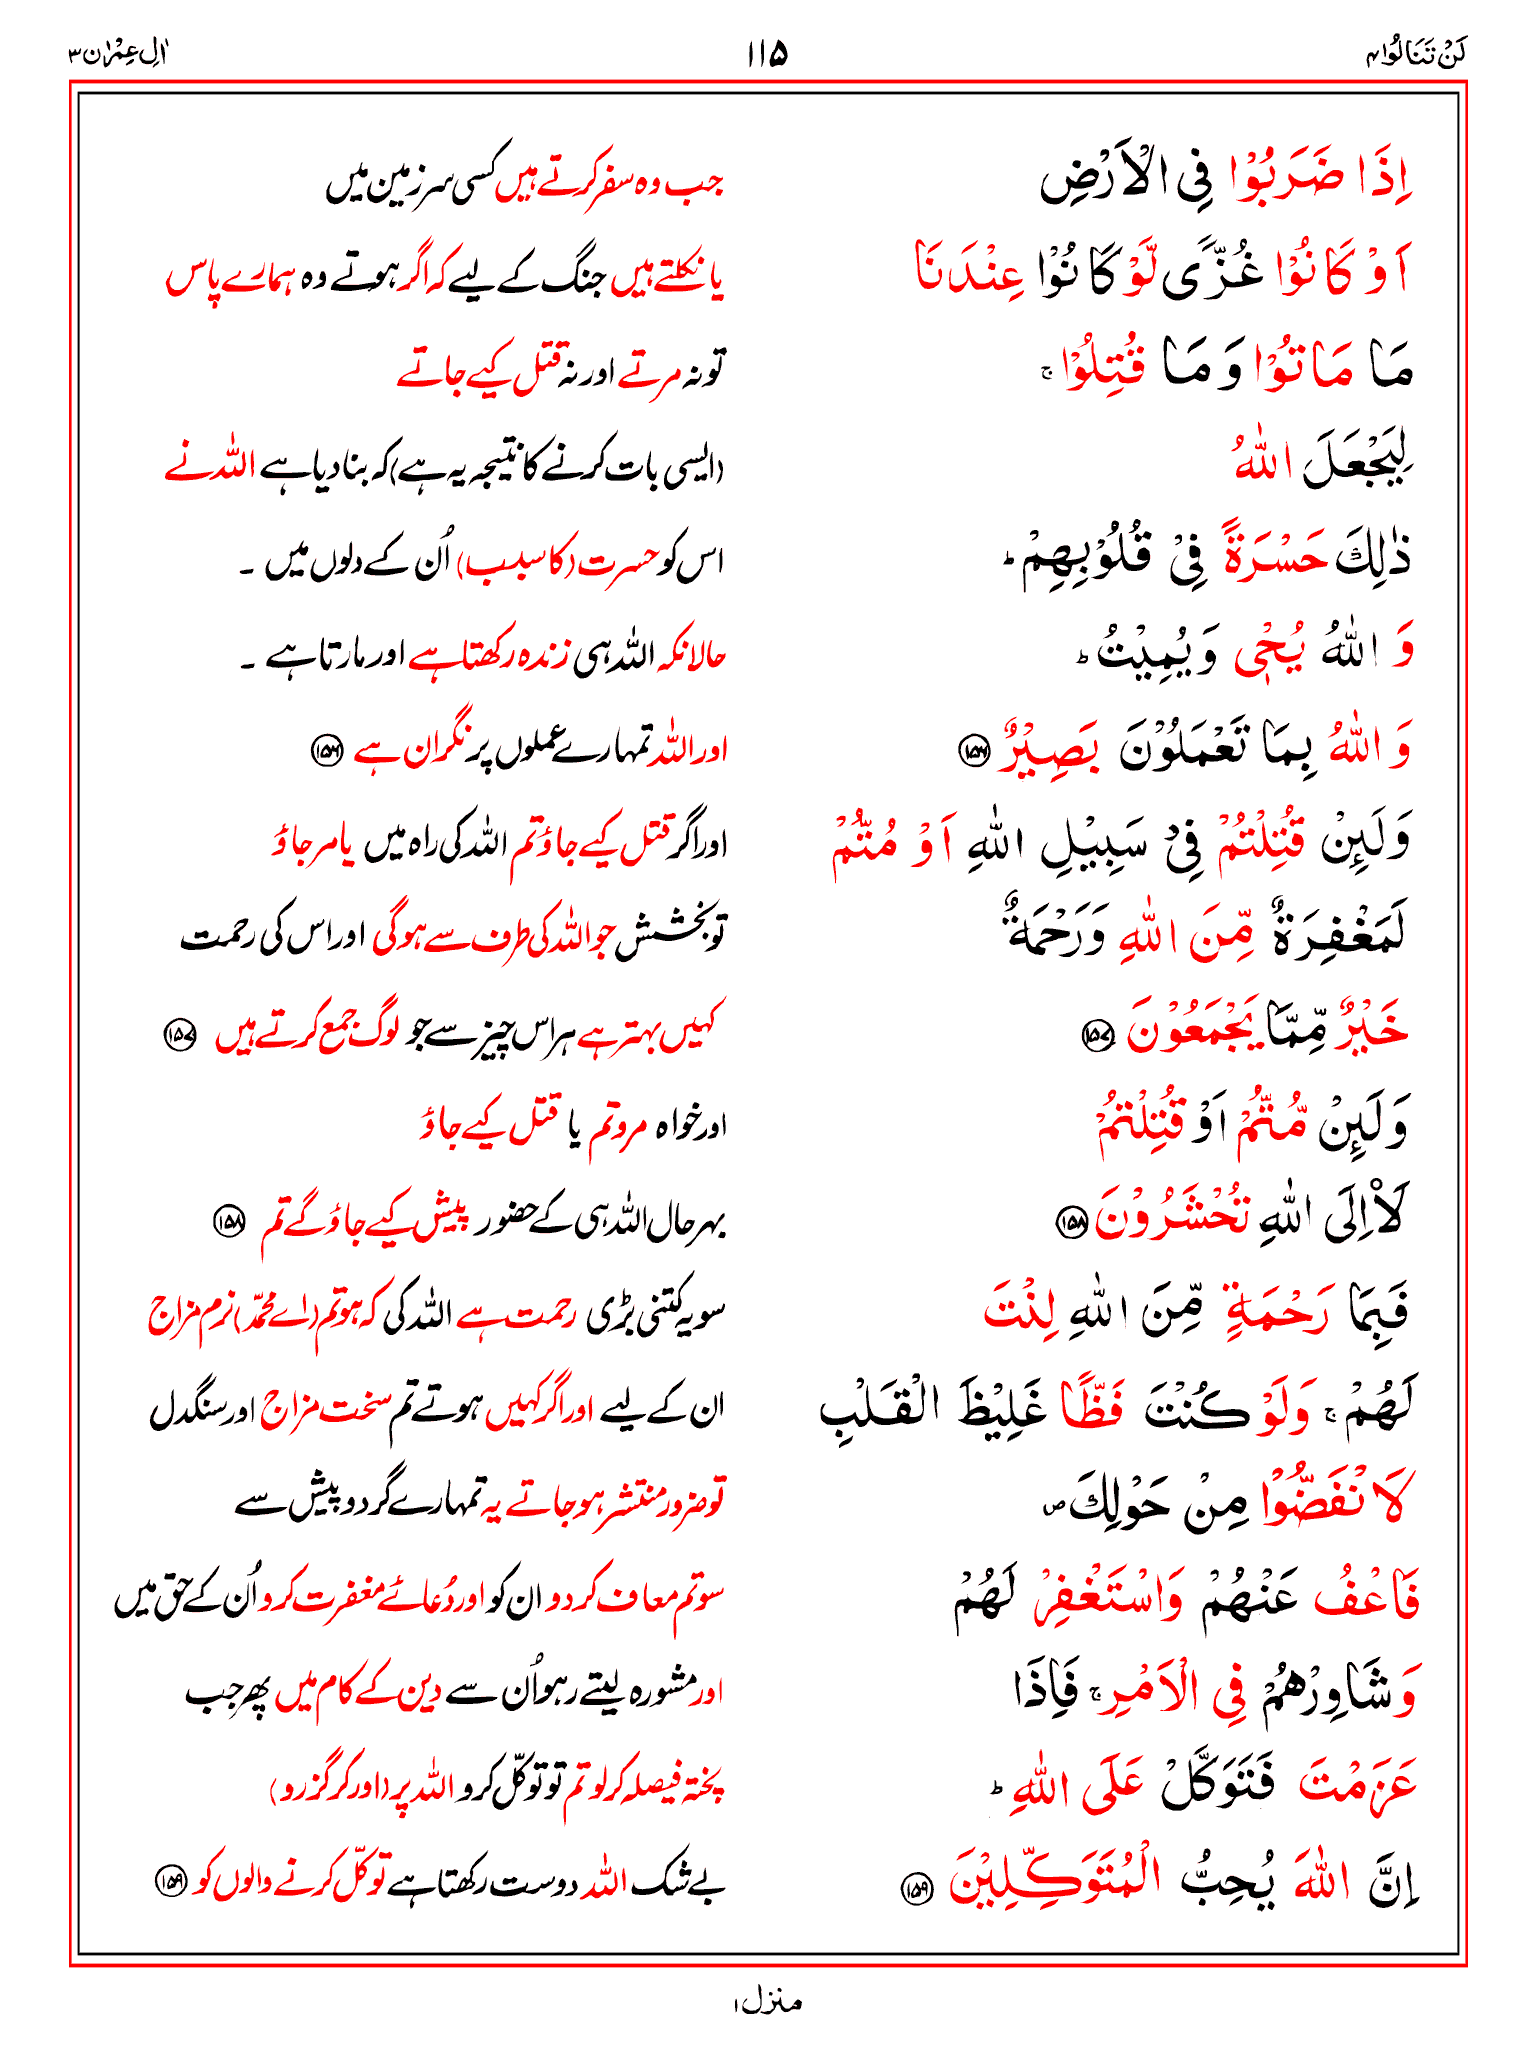 لَنْ تَنَالُوا ۴
۱۱۵
اٰلِ عِمْرٰن ۳
اِذَا ضَرَبُوْا فِی الْاَرْضِ
جب وہ سفر کرتے ہیں کسی سرزمین میں
اَوْ كَانُوْا غُزًّى لَّوْ كَانُوْا عِنْدَنَا
یا نکلتے ہیں جنگ کے لیے کہ اگر ہوتے وہ ہمارے پاس
مَا مَاتُوْا وَ مَا قُتِلُوْا ۚ
تو نہ مرتے اور نہ قتل کیے جاتے
لِيَجْعَلَ اللّٰهُ
(ایسی بات کرنے کا نتیجہ یہ ہے) کہ بنا دیا ہے اللہ نے
ذٰلِكَ حَسْرَةً فِیْ قُلُوْبِهِمْ ؕ
اس کو حسرت (کا سبب) اُن کے دلوں میں ۔
وَ اللّٰهُ يُحْیٖ وَ يُمِيْتُ ؕ
حالانکہ اللہ ہی زندہ رکھتا ہے اور مارتا ہے ۔
وَ اللّٰهُ بِمَا تَعْمَلُوْنَ بَصِيْرٌ ۱۵۶
اور اللہ تمہارے عملوں پر نگران ہے ۱۵۶
وَلَئِنْ قُتِلْتُمْ فِیْ سَبِيْلِ اللّٰهِ اَوْ مُتُّمْ
اور اگر قتل کیے جاؤ تم اللہ کی راہ میں یا مر جاؤ
لَمَغْفِرَةٌ مِّنَ اللّٰهِ وَرَحْمَةٌ
تو بخشش جو اللہ کی طرف سے ہوگی اور اس کی رحمت
خَيْرٌ مِّمَّا يَجْمَعُوْنَ ۱۵۷
کہیں بہتر ہے ہر اس چیز سے جو لوگ جمع کرتے ہیں ۱۵۷
وَلَئِنْ مُّتُّمْ اَوْ قُتِلْتُمْ
اور خواہ مرو تم یا قتل کیے جاؤ
لَاْاِلَى اللّٰهِ تُحْشَرُوْنَ ۱۵۸
بہر حال اللہ ہی کے حضور پیش کیے جاؤ گے تم ۱۵۸
فَبِمَا رَحْمَةٍ مِّنَ اللّٰهِ لِنْتَ
سو یہ کتنی بڑی رحمت ہے اللہ کی کہ ہو تم (اے محمدؐ) نرم مزاج
لَهُمْ ۚ وَلَوْ كُنْتَ فَظًّا غَلِيْظَ الْقَلْبِ
ان کے لیے اور اگر کہیں ہوتے تم سخت مزاج اور سنگدل
لَا نْفَضُّوْا مِنْ حَوْلِكَ ۪
تو ضرور منتشر ہو جاتے یہ تمہارے گرد و پیش سے
فَاعْفُ عَنْهُمْ وَاسْتَغْفِرْ لَهُمْ
سو تم معاف کر دو ان کو اور دُعائے مغفرت کرو اُن کے حق میں
وَشَاوِرْهُمْ فِی الْاَمْرِ ۚ فَاِذَا
اور مشورہ لیتے رہو اُن سے دین کے کام میں پھر جب
عَزَمْتَ فَتَوَكَّلْ عَلَى اللّٰهِ ؕ
پختہ فیصلہ کر لو تم تو توکّل کرو اللہ پر (اور کر گزرو)
اِنَّ اللّٰهَ يُحِبُّ الْمُتَوَكِّلِيْنَ ۱۵۹
بے شک اللہ دوست رکھتا ہے توکّل کرنے والوں کو ۱۵۹
منزل ۱